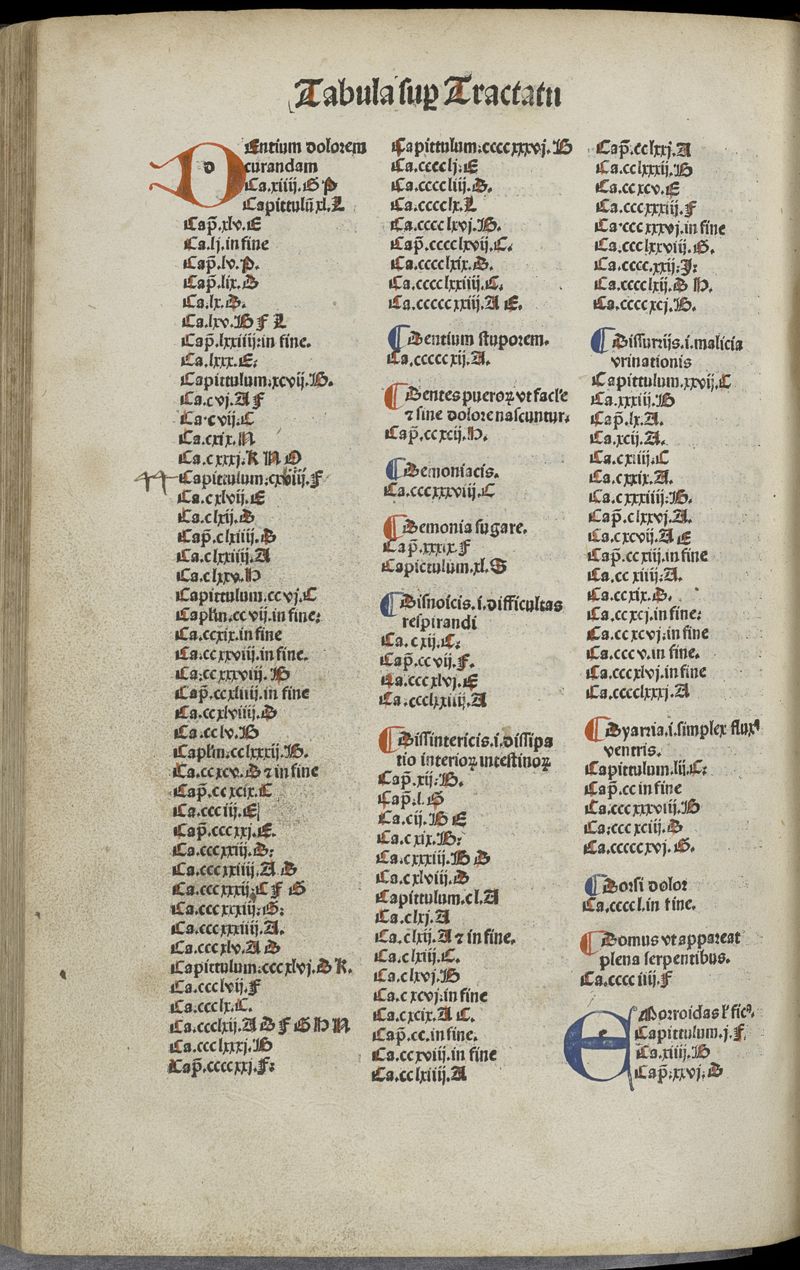 Tabula sup̱ Tractatū
DEntium dolorem
curandam
Ca.xiiij.G P
Capittulū xl.L
Cap̄.xlv.E
Ca.lj.in fine
Cap̄.lv.P.
Cap̄.lix.D
Ca.lx.D.
Ca.lxv.B F L
Cap̄.lxxiiij:in fine.
Ca.lxxx.E:
Capittulum:xcvij.B.
Ca.cvj.A F
Ca.cvij:C
Ca.cxix.N
Ca.cxxxj.K N O
Capittulum:cxviiij.F
Ca.cxlvij.E
Ca.clxij.D
Cap̄.clxiiij.D
Ca.clxxiiij.A
Ca.clxxv.H
Capittulum.ccvj.C
Caplm̄.ccvij.in fine:
Ca.ccxix.in fine
Ca.ccxxviij.in fine.
Ca:ccxxxviij.B
Cap̄.ccxliiij.in fine
Ca.ccxlviiij.D
Ca.cclv.B
Caplm̄.cclxxxij.B.
Ca.ccxcv.D ⁊ in fine
Cap̄.ccxcix.C
Ca.ccciij.E
Cap̄.cccxxj.E.
Ca.cccxxiij.D:
Ca.cccxxiiij.A D
Ca.cccxxxij:C F G
Ca.cccxxxiij:G:
Ca.cccxxxiiij.A.
Ca.cccxlv.A D
Capittulum:cccxlvj.D K.
Ca.ccclvij.F
Ca.ccclx.C.
Ca.ccclxij.A D F G H N
Ca.ccclxxxj.B
Cap̄.ccccxxj.F:
Capittulum:ccccxxxvj.B
Ca.cccclj:E
Ca.ccccliij.D.
Ca.cccclx.L
Ca.cccclxvj.B.
Cap̄.cccclxvij.C.
Ca.cccclxix.D.
Ca.cccclxxiiij.C.
Ca.cccccxxiij.A E.
¶ Dentium stuporem.
Ca.cccccxij.A.
¶ Dentes pueroꝝ vt facl'e
⁊ sine dolore nascuntur.
Cap̄.ccxcij.H.
¶ Demoniacis.
Ca.cccxxxviij.C
¶ Demonia fugare.
Cap̄.xxxix.F
Capictulum.xl.S
¶ Disnoicis.i.difficultas
respirandi
Ca.cxij.C:
Cap̄.ccvij.F.
Ca.cccxlvj.E
Ca.ccclxxiiij.A
¶ Dissintericis.i.dissipa
tio interioꝝ intestinoꝝ
Cap̄.xij:B.
Cap̄.l.G
Ca.cij.B E
Ca.cxix.B:
Ca.cxxxiij.B D
Ca.cxlviij.D
Capittulum.cl.A
Ca.clxj.A
Ca.clxij.A ⁊ in fine.
Ca.clxiij.C.
Ca.clxvj.B
Ca.cxcvj:in fine
Ca.cxcix.A C.
Cap̄.cc.in fine.
Ca.ccxviij.in fine
Ca.cclxiiij.A
Cap̄.cclxxj.A
Ca.cclxxxij.B
Ca.ccxcv.E
Ca.cccxxxiij.F
Ca.cccxxxvj.in fine
Ca.ccclxxviij.G.
Ca.cccc.xxij.I:
Ca.cccclxij.D H.
Ca.ccccxcj.B.
¶ Dissurijs.i.malicia
vrinationis
Capittulum.xxvij.C
Ca.xxxiij.B
Cap̄.lx.A.
Ca.xcij.A.
Ca.cxiiij.C
Ca.cxxix.A.
Ca.cxxxiiij:B.
Cap̄.clxxvj.A.
Ca.cxcvij.A E
Cap̄.ccxiij.in fine
Ca.ccxiiij:A.
Ca.ccxix.D.
Ca.ccxcj.in fine:
Ca.ccxcvj:in fine
Ca.cccv.in fine.
Ca.cccxlvj.in fine
Ca.cccclxxxj.A
¶ Dyarria.i.simplex flux⁹
ventris.
Capittulum.lij.C:
Cap̄.cc in fine
Ca.cccxxxviij.B
Ca:cccxciij.D
Ca.cccccxvj.G.
¶ Dorsi dolor
Ca.ccccl.in fine.
¶ Domus vt appareat
plena serpentibus.
Ca.cccciiij.F
EMorroidas l' fic⁹.
Capittulum.j.F.
Ca.xiiij.B
Cap̄:xxvj:D